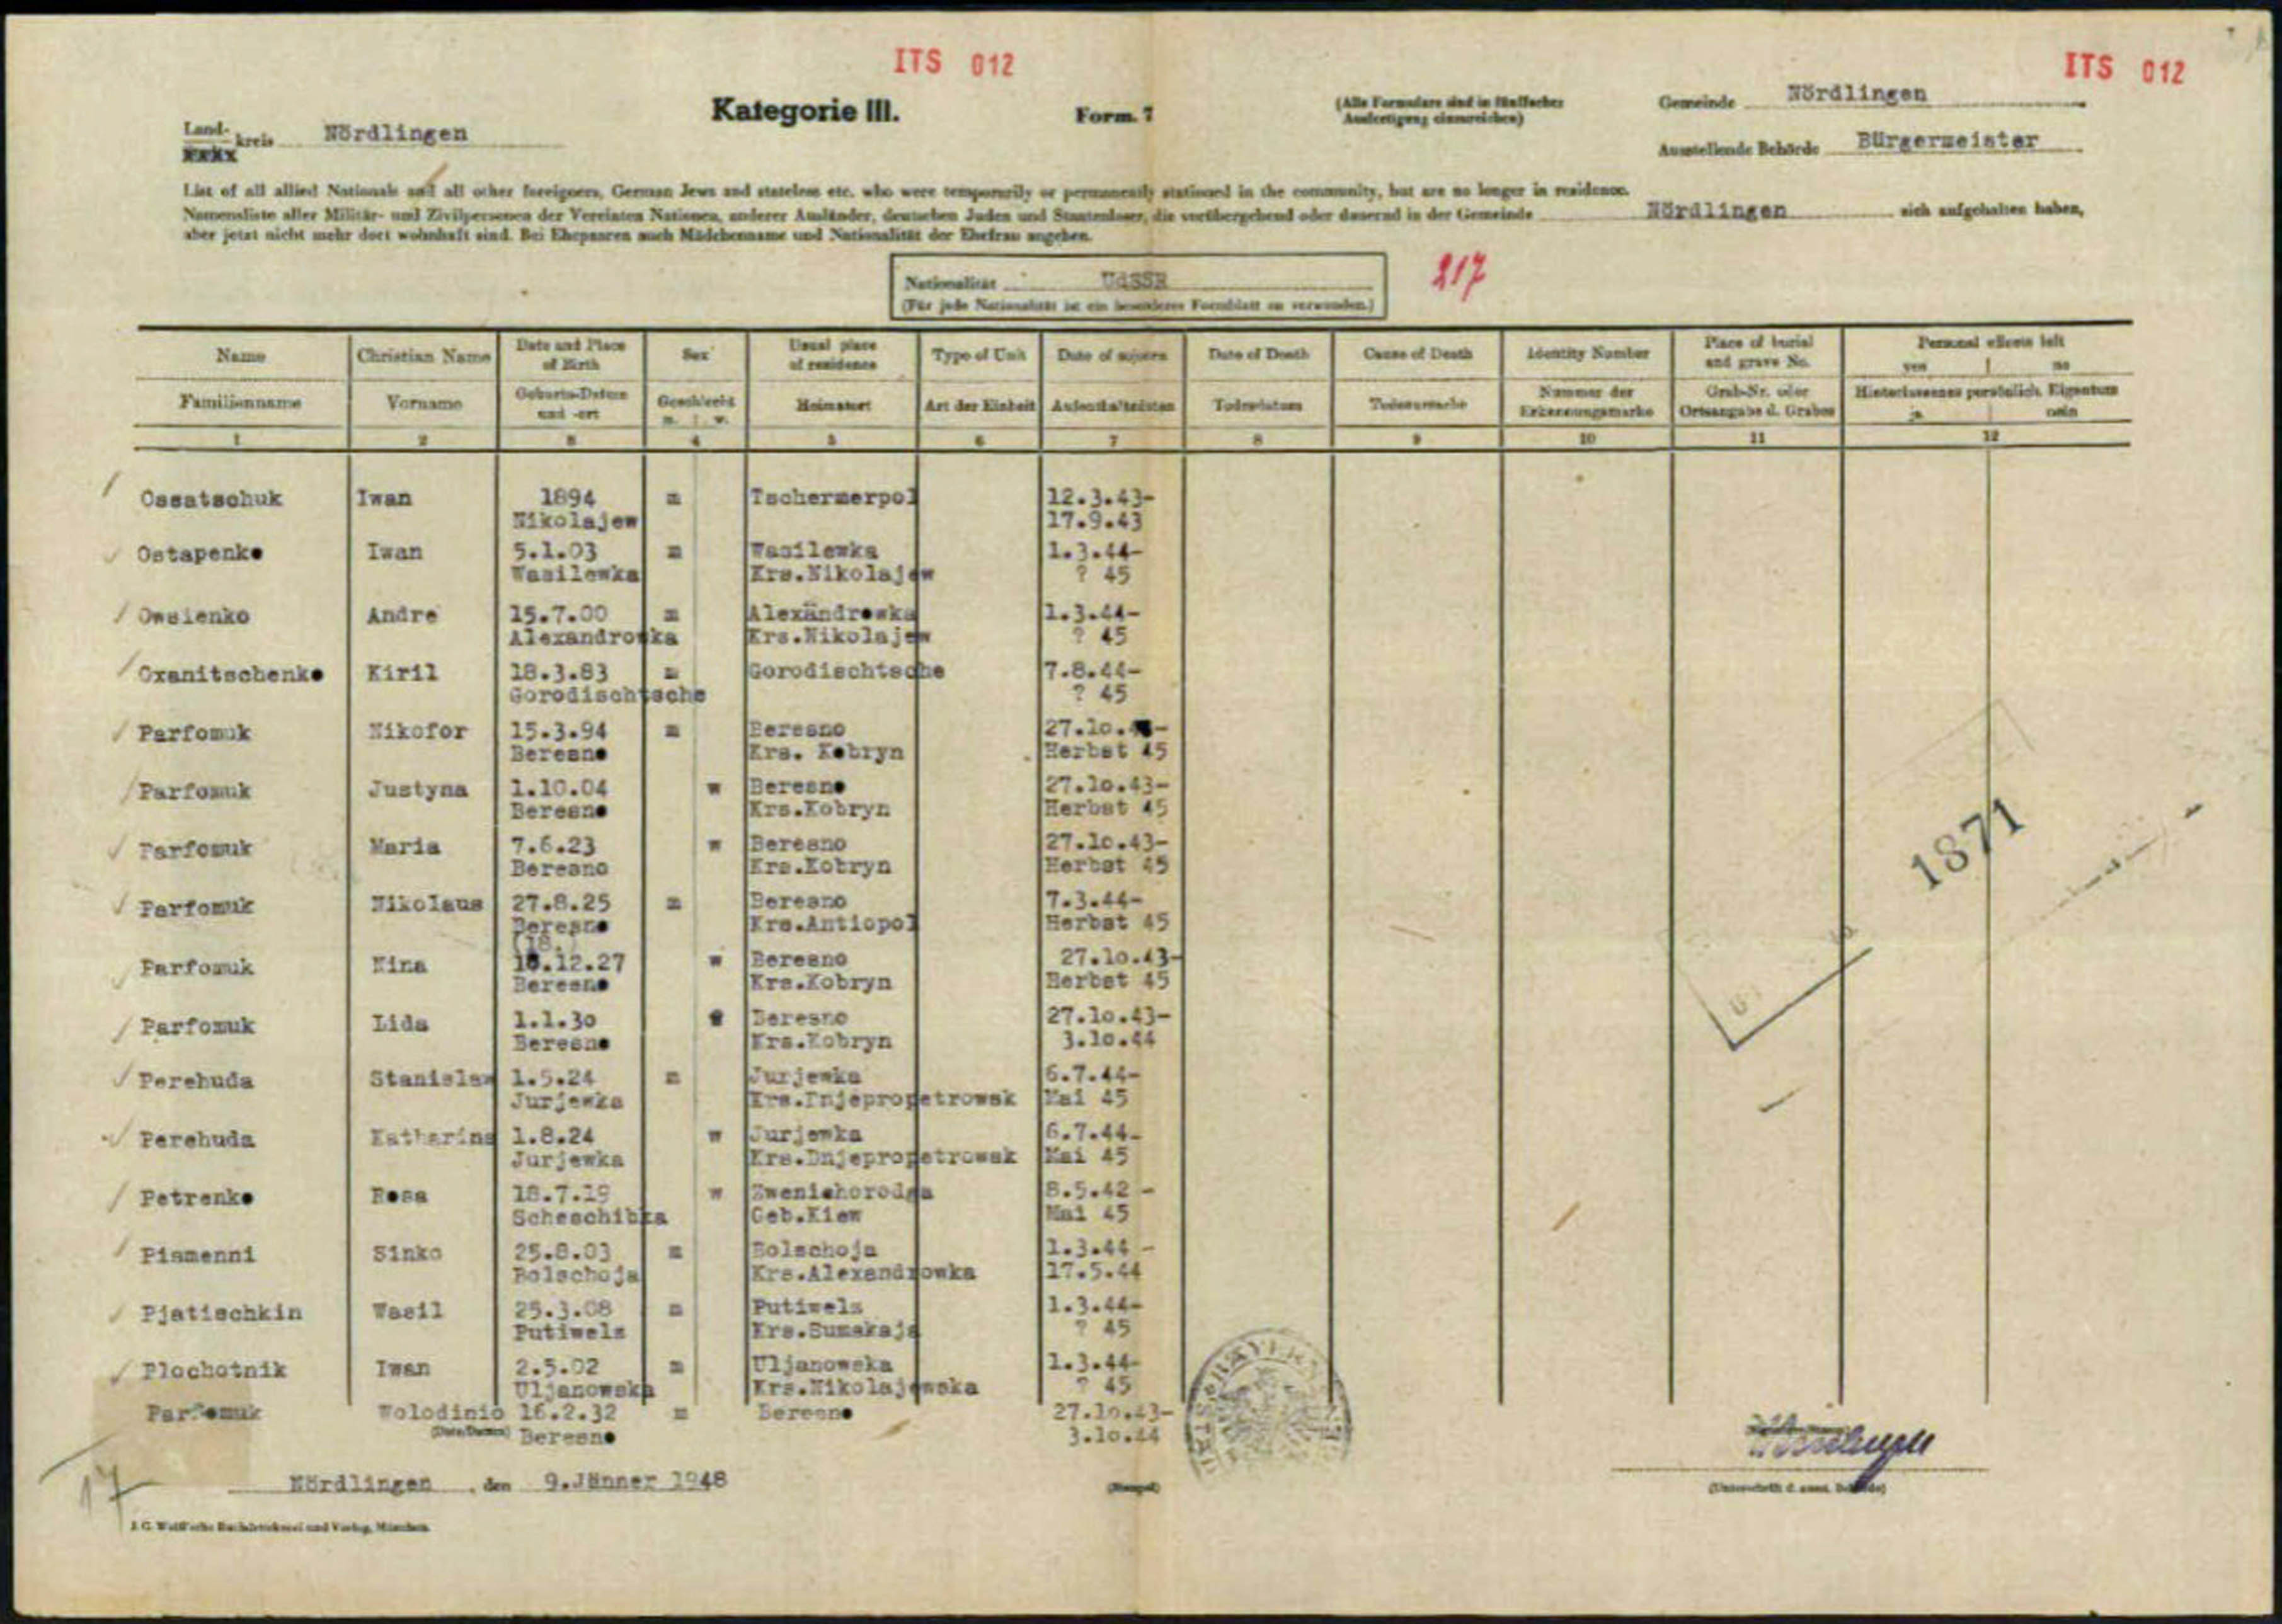 ITS 012
ITS 012
Kategorie III.
Form. 7
(Alle Formulare sind in fünffacher
Ausfertigung einzureichen)
Gemeinde Nördlingen
Land-
kreis Nördlingen
Ausstellende Behörde Bürgermeister
List of all allied Nationals and all other foreigners, German Jews and stateless etc. who were temporarily or permanently stationed in the community, but are no longer in residence.
Namensliste aller Militär- und Zivilpersonen der Vereinten Nationen, anderer Ausländer, deutschen Juden und Staatenloser, die vorübergehend oder dauernd in der Gemeinde Nördlingen sich aufgehalten haben,
aber jetzt nicht mehr dort wohnhaft sind. Bei Ehepaaren auch Mädchenname und Nationalität der Ehefrau angeben.
Nationalität UdSSR
(Für jede Nationalität ist ein besonderes Formblatt zu verwenden.)
217
Name Christian Name Date and Place of Birth Sex Usual place of residence Type of Unit Date of Death Cause of Death Identity Number Place of burial and grave No. Personal effects left yes no
Familienname Vorname Geburts-Datum und -ort Geschlecht m. w. Heimatort Art der Einheit Aufenthaltsdaten Todesdatum Todesursache Nummer der Erkennungsmarke Grab-Nr. oder Ortsangabe d. Grabes Hinterlassenes persönlich. Eigentum ja nein
1 2 3 4 5 6 7 8 9 10 11 12
Ossatschuk Iwan 1894 m Tschermerpol 12.3.43-
Nikolajew 17.9.43
Ostapenko Iwan 5.1.03 m Wasilewka 1.3.44-
Wasilewka Krs.Nikolajew ? 45
Owsienko Andre 15.7.00 m Alexandrowka 1.3.44-
Alexandrowka Krs.Nikolajew ? 45
Oxanitschenko Kiril 18.3.83 m Gorodischtsche 7.8.44-
Gorodischtsche ? 45
Parfomuk Nikofor 15.3.94 m Beresno 27.10.
Beresno Krs. Kobryn Herbst 45
Parfomuk Justyna 1.10.04 w Beresno 27.10.43-
Beresno Krs.Kobryn Herbst 45
Parfomuk Maria 7.6.23 w Beresno 27.10.43-
Beresno Krs.Kobryn Herbst 45
Parfomuk Nikolaus 27.8.25 m Beresno 7.3.44-
Beresno Krs.Antiopol Herbst 45
(18.)
Parfomuk Nina 18.12.27 w Beresno 27.10.43-
Beresno Krs.Kobryn Herbst 45
Parfomuk Lida 1.1.30 Beresno 27.10.43-
Beresno Krs.Kobryn 3.10.44
Perehuda Stanislaw 1.5.24 m Jurjewka 6.7.44-
Jurjewka Krs.Dnjepropetrowsk Mai 45
Perehuda Katharina 1.8.24 w Jurjewka 6.7.44-
Jurjewka Krs.Dnjepropetrowsk Mai 45
Petrenko Rosa 18.7.19 w Zwenihorodga 8.5.42 -
Scheschibka Geb.Kiew Mai 45
Pismenni Sinko 25.8.03 m Bolschoja 1.3.44 -
Bolschoja Krs.Alexandrowka 17.5.44
Pjatischkin Wasil 25.3.08 m Putiwelz 1.3.44-
Putiwelz Krs.Sumskaja ? 45
Plochotnik Iwan 2.5.02 m Uljanowska 1.3.44-
Uljanowska Krs.Nikolajewska ? 45
Parfomuk Wolodinio 16.2.32 m Beresno 27.10.43-
Beresno 3.10.44
1871
(Date/Datum)
17
Nördlingen, den 9.Jänner 1948
(Stempel)
(Unterschrift d. ausst. Behörde)